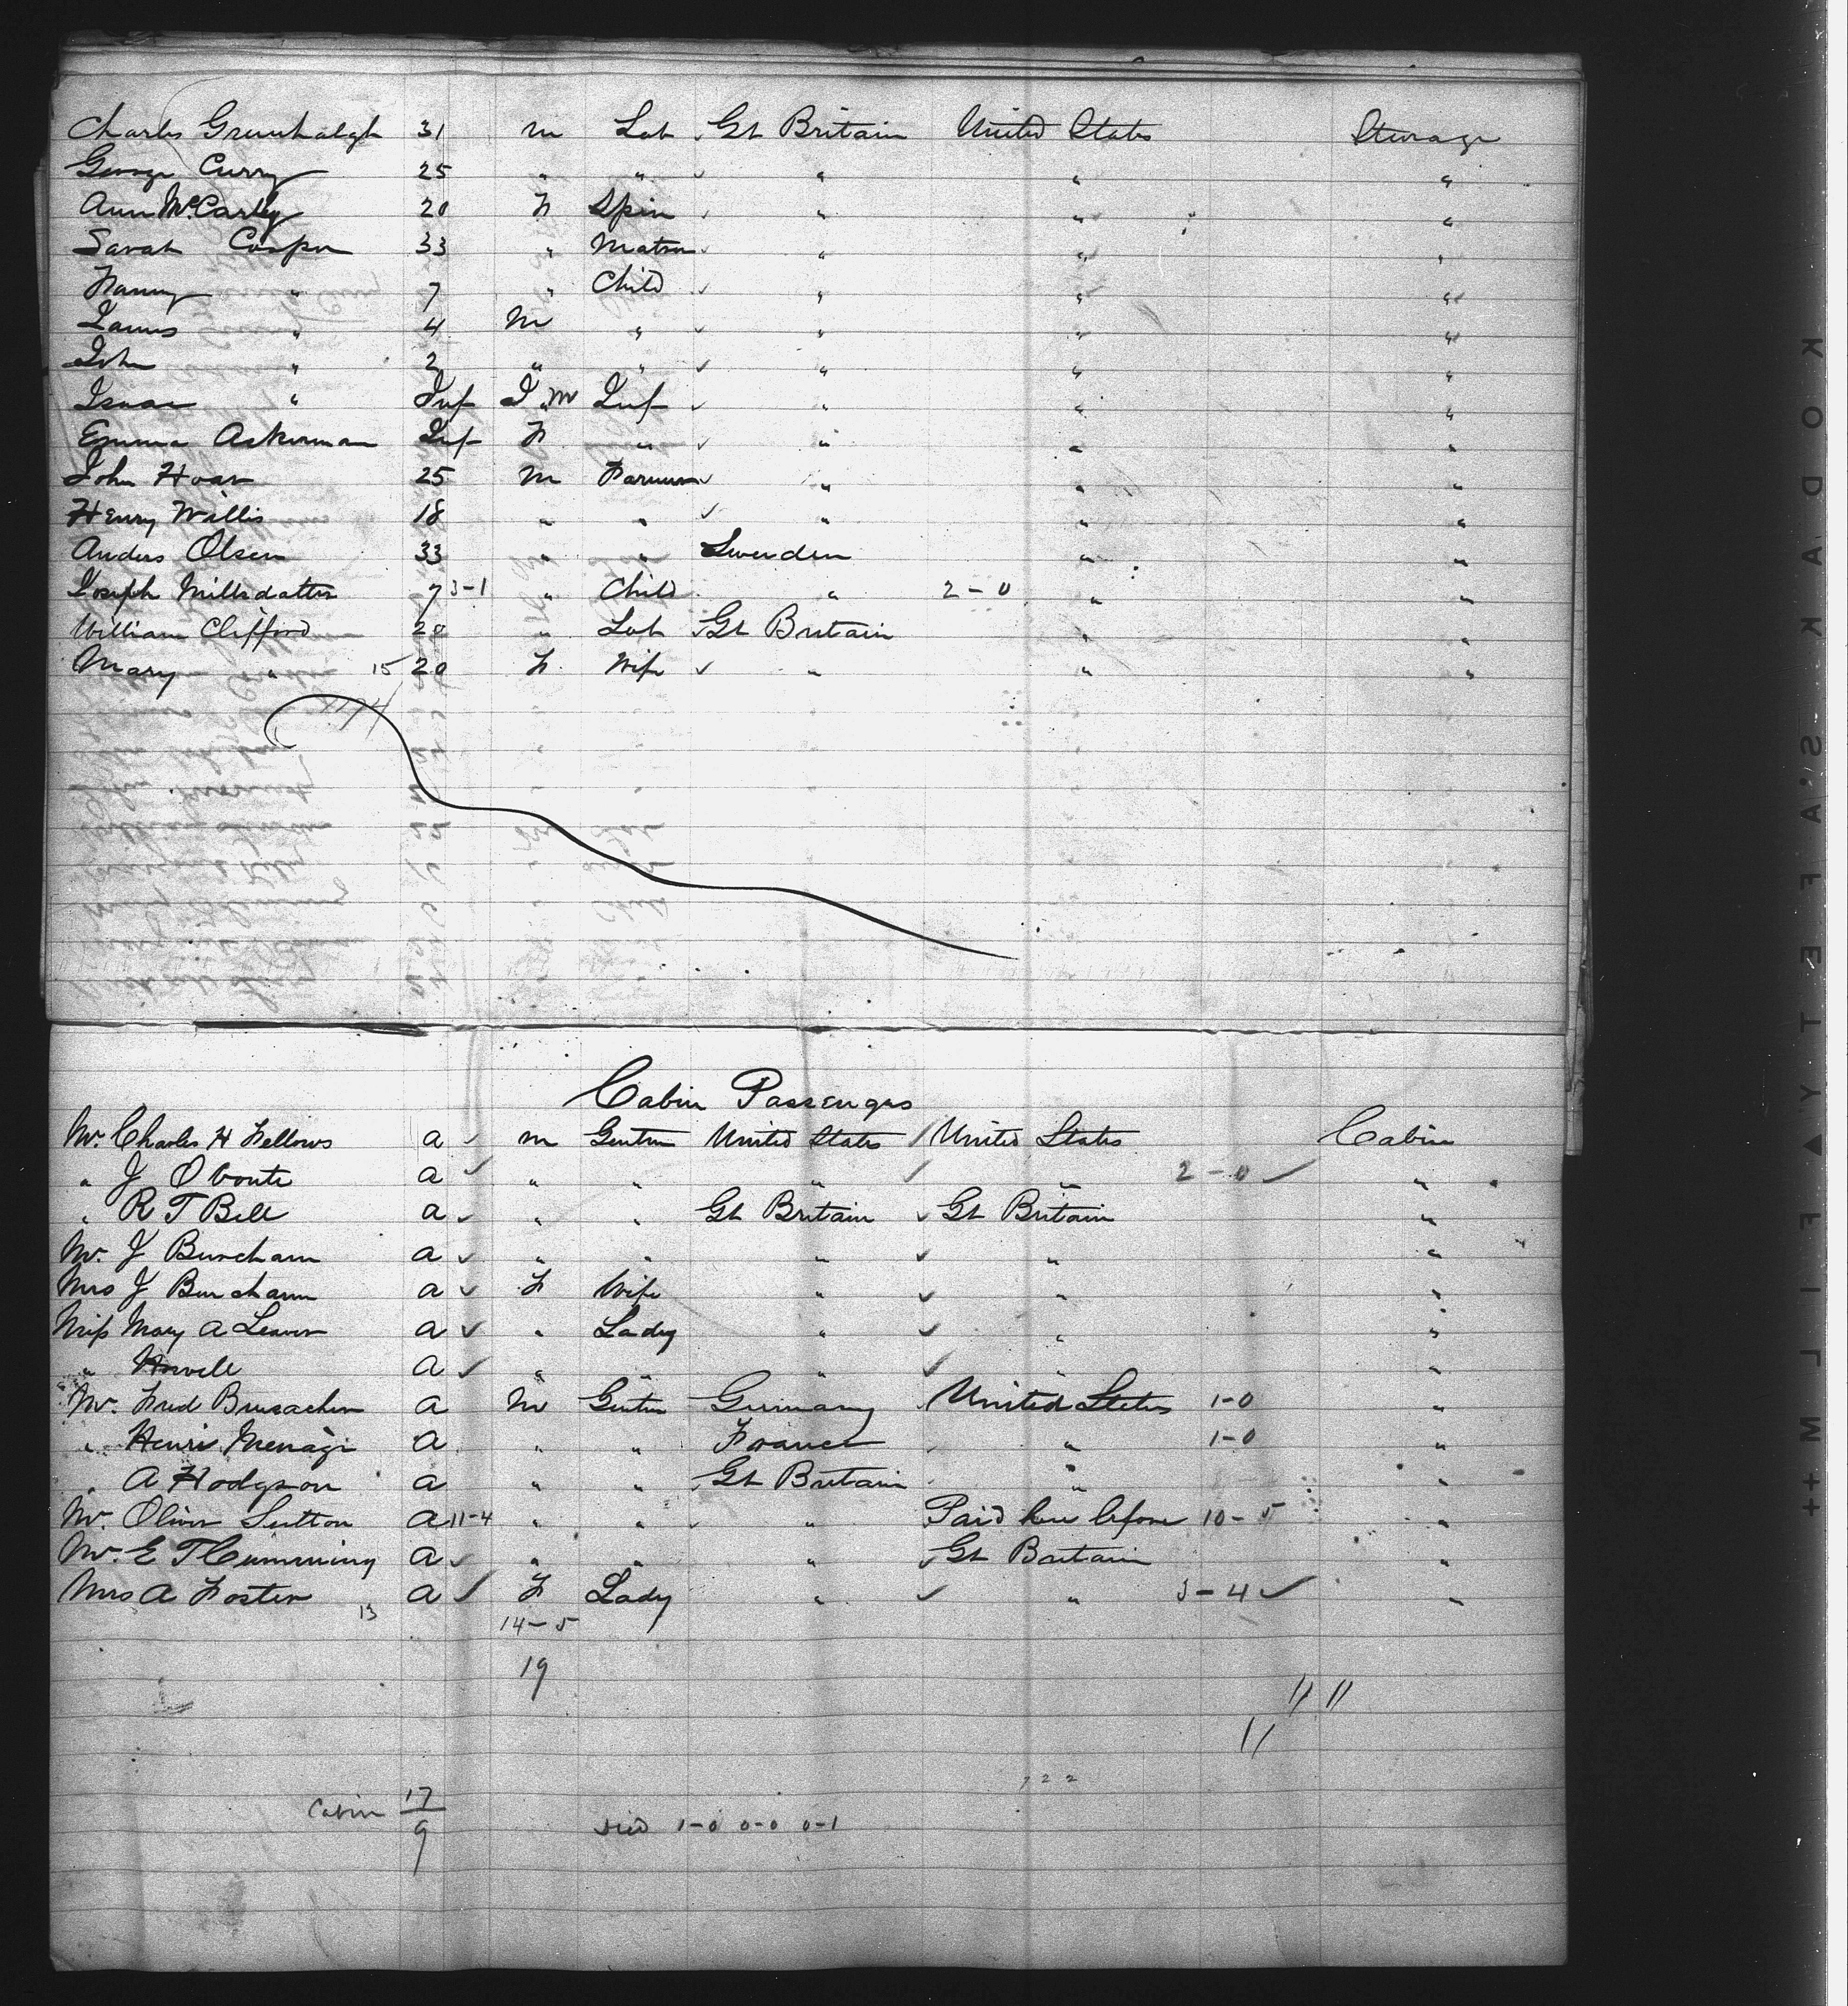 Charles Greenhalgh 31 m Lab Gt Britain United States Steerage
George Curry 25 " " " " "
Ann McCarty 20 F Spin " " "
Sarah Cooper 33 " Matron " " "
Fanny " 7 " Child " " "
James " 4 M " " " "
John " 2 " " " " "
Isaac " Inf I M Inf " " "
Emma Ackerman Inf F " " " "
John Hoar 25 m Farmer " " "
Henry Willis 18 " " " " "
Anders Olsen 33 " " Sweeden " "
Joseph Nillsdatter 7 3-1 " Child " 2-0 " "
William Clifford 20 " Lab Gt Britain " "
Mary " 15 20 F Wife " " "
Cabin Passengers
Mr. Charles H Fellows a m Gentm United States United States Cabin
" J O " " a " " " " 2-0 "
" R T Bell a " " Gt Britain Gt Britain "
Mr. J Burcham a " " " " "
Mrs J Burcham a F Wife " " "
Miss Mary A Leaver a " Lady " " "
" Howell a " " " " "
Mr. Fred a M Gentm Germany United States 1-0 "
" Henri Menage a " " France " 1-0 "
" A Hodgson a " " Gt Britain " "
Mr. Oliver Sutton a 11-4 " " " Paid here before 10-5 "
Mr. E T Cumming a " " " Gt Britain "
Mrs A Foster 13 a F Lady " " 3-4 "
14-5
19
11 11
11
722
Cabin 17
9
died 1-0 0-0 0-1
KODAK'S'AFETY▲FILM++